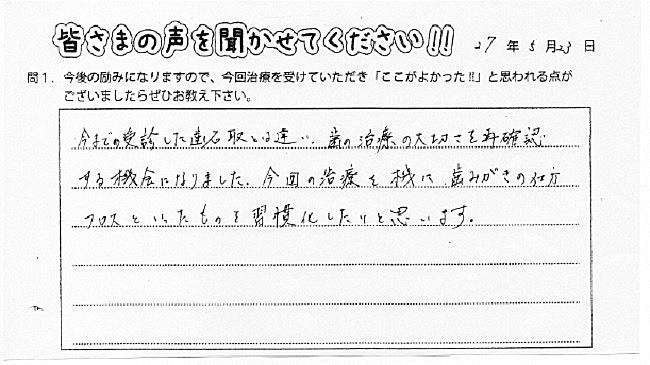 皆さまの声を聞かせてください!! 27年5月23日
問1. 今後の励みになりますので、今回治療を受けていただき「ここがよかった!!」と思われる点が
ございましたらぜひお教え下さい。
今までの受診した歯石取とは違い、歯の治療の大切さを再確認
する機会になりました。今回の治療を機に歯みがきの仕方
フロスといったものを習慣化したいと思います。